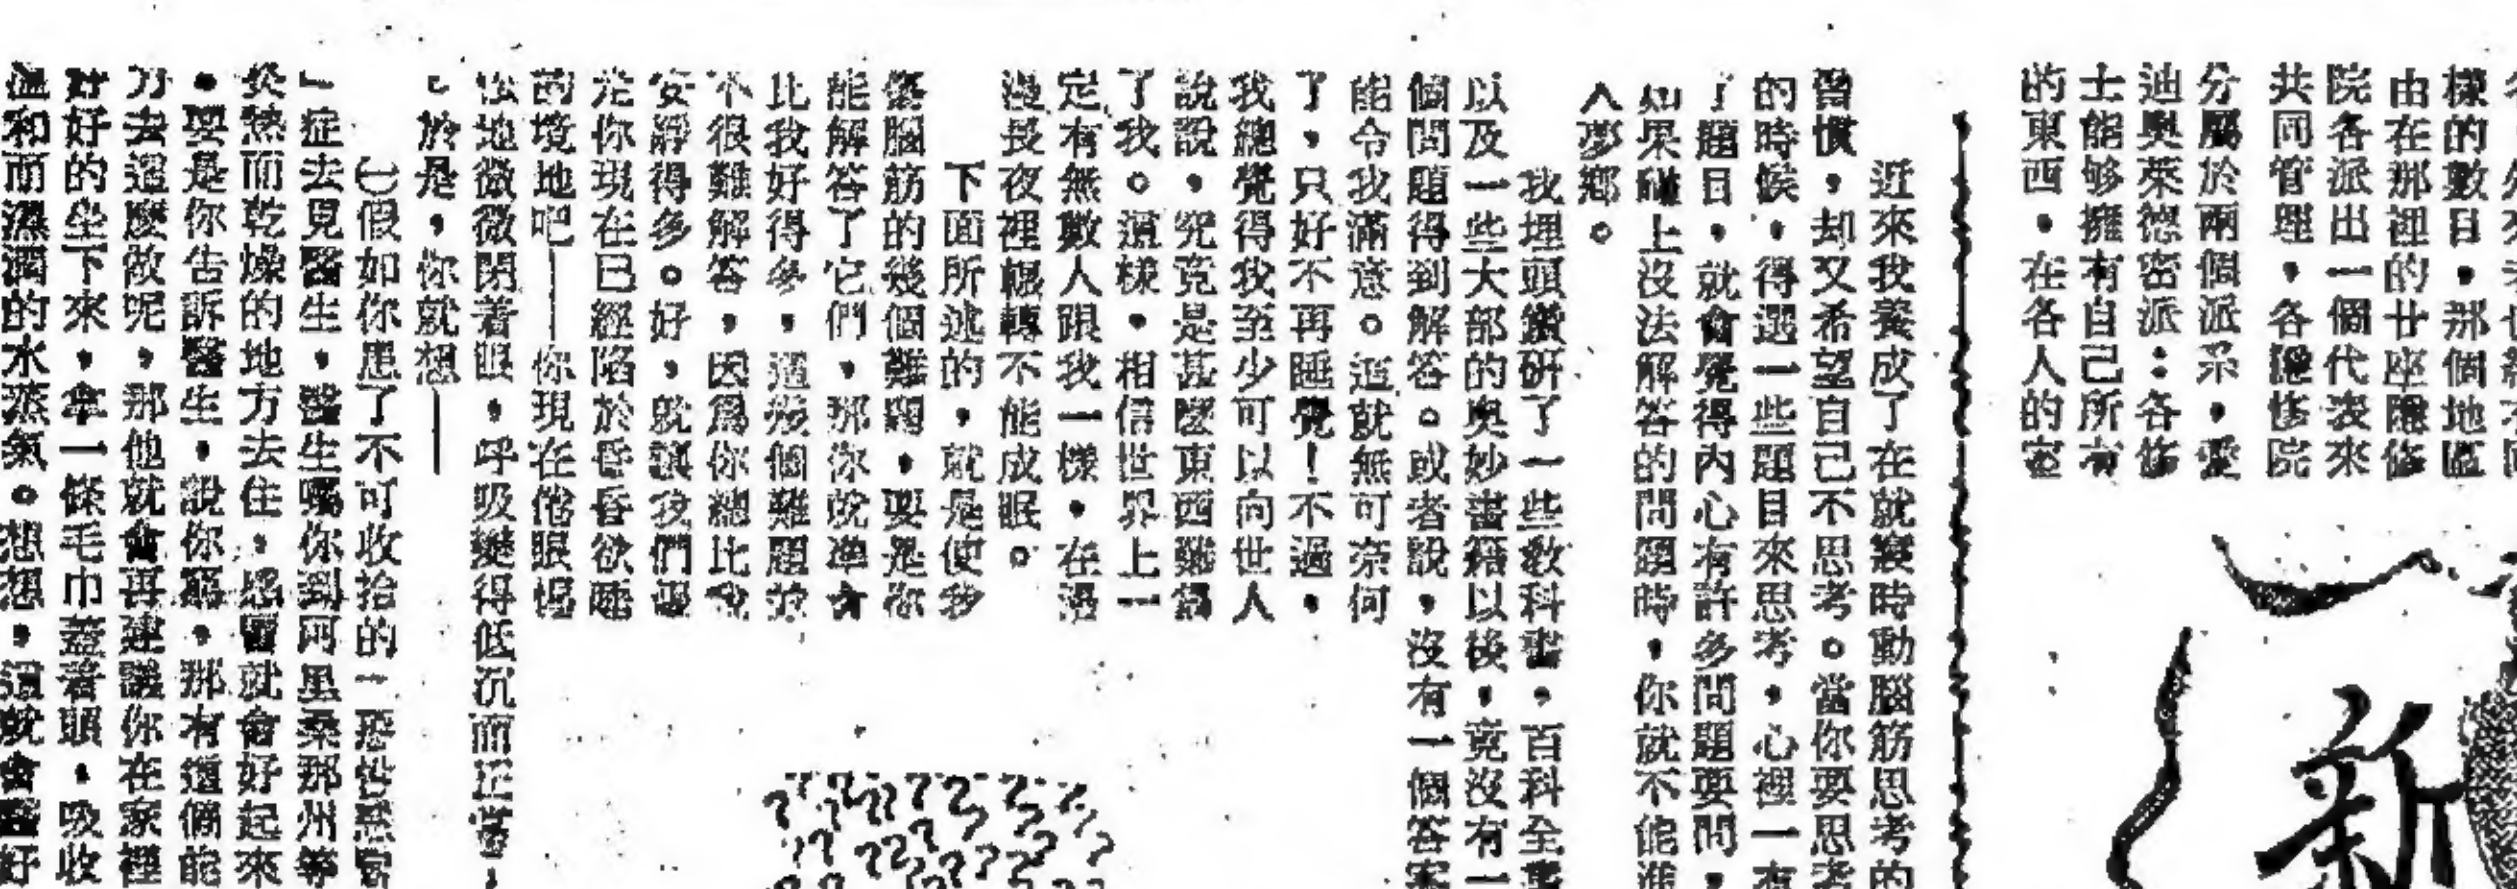 樣的數目，那個地區
由在那裡的廿座隱修
院各派出一個代表來
共同管理，各隱修院
分屬於兩個派系，愛
迪奧萊德密派：各修
士能够擁有自己所有
的東西，在各人的室
近來我養成了在就寢時動腦筋思考的
習慣，却又希望自己不思考。當你要思考
的時候，得選一些題目來思考，心裡一有
了題目，就會覺得內心有許多問題要問，
如果碰上沒法解答的問題時，你就不能進
入夢鄉。
我埋頭鑽研了一些敎科書，百科全書
以及一些大部的奧妙書籍以後，竟沒有一
個問題得到解答。或者說，沒有一個答案
能令我滿意。這就無可奈何
了，只好不再睡覺！不過，
我總覺得我至少可以向世人
說說，究竟是甚麼東西難爲
了我。這樣，相信世界上一
定有無數人跟我一樣，在漫
漫長夜裡輾轉不能成眠。
下面所述的，就是使我
傷腦筋的幾個難題，要是你
能解答了它們，那你就準會
比我好得多，這幾個難題並
不很難解答，因爲你總比我
安靜得多。好，就讓我們
你現在已經陷於昏昏欲睡
的境地吧——你現在倦眼惺
忪地微微閉着眼，呼吸變得低沉而正常，
於是，你就想——
假如你患了不可收拾的
症去見醫生，醫生囑你到阿里桑那州等
炎熱而乾燥的地方去住，感冒就會好起來
，要是你告訴醫生，說你窮，那有這個能
力去這麼做呢，那他就會再建議你在家裡
好好的坐下來，拿一條毛巾蓋着頭，吸收
溫和而濕潤的水蒸氣。想想，這就會醫好
新